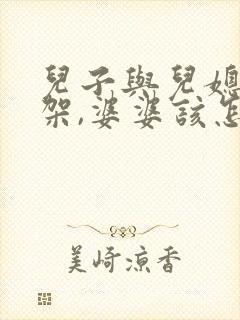 兒子與兒媳
架,婆婆該怎
美崎凉香